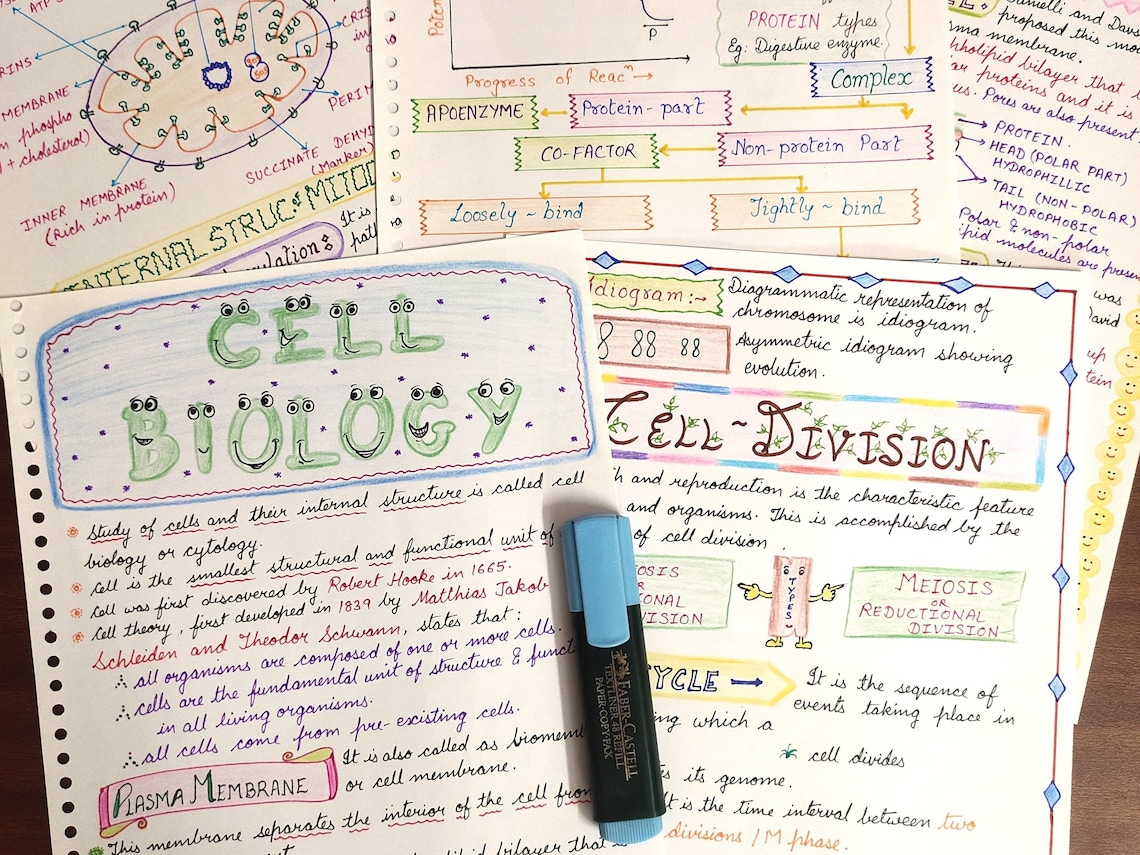 ATP S
CRIS
RINS
MEMBRANE
phospho
+ cholesterol)
PERIM
SUCCINATE DEHYD
(Marker)
INNER MEMBRANE
(Rich in protein)
INTERNAL STRUC. of MITOC
ulation:
It is
Poten
P
Progress of Reacⁿ →
PROTEIN types
Eg: Digestive enzyme.
Complex
APOENZYME
Protein-part
CO-FACTOR
Non-protein Part
Loosely ~ bind
Tightly ~ bind
Danielli and Davs
proposed this mo
sma membrane.
phospholipid bilayer that
proteins and it is
Pores are also present
PROTEIN.
HEAD (POLAR PART)
HYDROPHILLIC
TAIL (NON-POLAR)
HYDROPHOBIC
Polar & non-polar
lipid molecules are presen
was
David
up
tein
CELL
BIOLOGY
Study of cells and their internal structure is called cell
biology or cytology.
Cell is the smallest structural and functional unit of
Cell was first discovered by Robert Hooke in 1665.
Cell theory, first developed in 1839 by Matthias Jakob
Schleiden and Theodor Schwann, states that:
all organisms are composed of one or more cells.
cells are the fundamental unit of structure & funct
in all living organisms.
all cells come from pre-existing cells.
PLASMA MEMBRANE
It is also called as biomem
or cell membrane.
This membrane separates the interior of the cell from
bilayer that is
idiogram:→
Diagrammatic representation of
chromosome is idiogram.
Asymmetric idiogram showing
evolution.
CELL ~ DIVISION
h and reproduction is the characteristic feature
and organisms. This is accomplished by the
of cell division.
OSIS
OR
IONAL
VISION
TYPES
MEIOSIS
OR
REDUCTIONAL
DIVISION
CYCLE →
It is the sequence of
events taking place in
ing which a
cell divides
its genome.
It is the time interval between two
divisions / M phase.
FABER-CASTELL
TEXTLINER 48 REFILL
PAPER·COPY·FAX